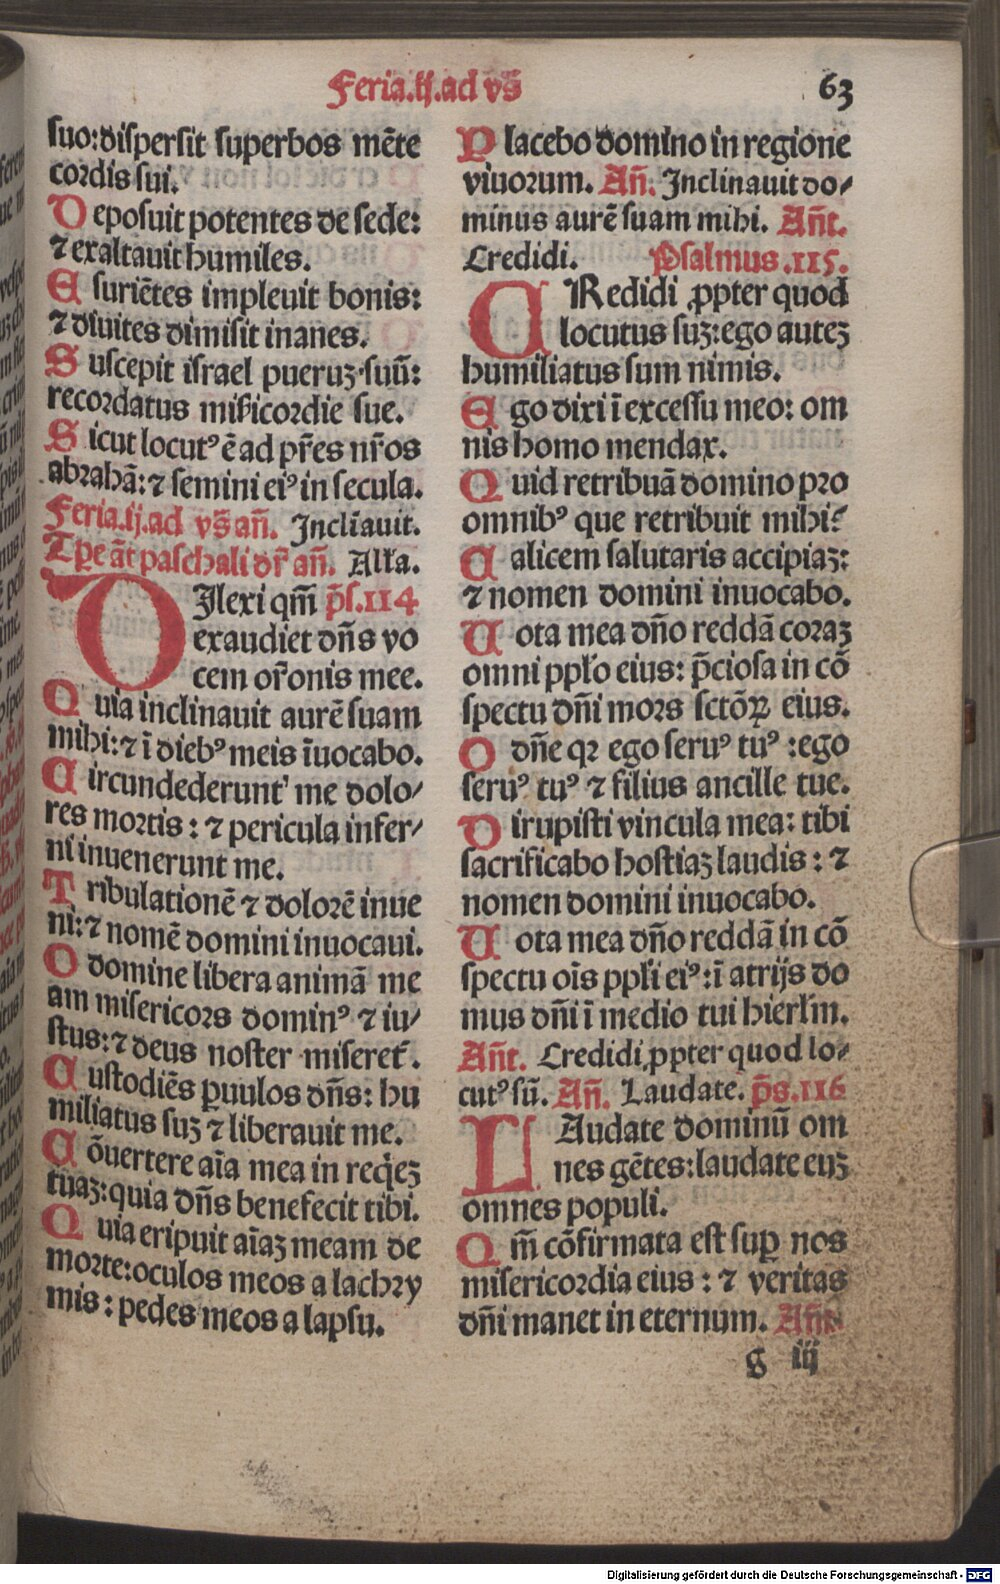 Feria.ij.ad vs̃
63
suo:dispersit superbos mẽte
cordis sui.
Deposuit potentes de sede:
⁊ exaltauit humiles.
Esuriẽtes impleuit bonis:
⁊ diuites dimisit inanes.
Suscepit israel pueruꝫ suũ:
recordatus mĩsicordie sue.
Sicut locutꝰ ẽ ad pr̃es nr̃os
abrahã: ⁊ semini eiꝰ in secula.
Feria.ij.ad vs̃ añ. Inclĩauit.
Tp̃e ãt paschali dr̃ añ. Alła.
DIlexi qm̃ p̃s.114
exaudiet dñs vo
cem or̃onis mee.
Quia inclinauit aurẽ suam
mihi: ⁊ ĩ diebꝰ meis ĩuocabo.
Circundederunt me dolo/
res mortis: ⁊ pericula infer/
ni inuenerunt me.
Tribulationẽ ⁊ dolorẽ inue
ni: ⁊ nomẽ domini inuocaui.
O domine libera animã me
am misericors dominꝰ ⁊ iu/
stus: ⁊ deus noster miseret̃.
Custodiẽs ꝑuulos dñs: hu
miliatus suꝫ ⁊ liberauit me.
Cõuertere aĩa mea in reqẽꝫ
tuaꝫ: quia dñs benefecit tibi.
Quia eripuit aĩaꝫ meam de
morte: oculos meos a lachry
mis: pedes meos a lapsu.
Placebo domino in regione
viuorum. Añ. Inclinauit do/
minus aurẽ suam mihi. Añt.
Credidi. Psalmus.115.
CRedidi ꝓpter quod
locutus suꝫ: ego auteꝫ
humiliatus sum nimis.
Ego dixi ĩ excessu meo: om
nis homo mendax.
Quid retribuã domino pro
omnibꝰ que retribuit mihi?
Calicem salutaris accipiaꝫ:
⁊ nomen domini inuocabo.
Uota mea dño reddã coraꝫ
omni ppło eius: p̃ciosa in cõ
spectu dñi mors sctõꝝ eius.
O dñe qꝛ ego seruꝰ tuꝰ: ego
seruꝰ tuꝰ ⁊ filius ancille tue.
Dirupisti vincula mea: tibi
sacrificabo hostiaꝫ laudis: ⁊
nomen domini inuocabo.
Uota mea dño reddã in cõ
spectu oĩs ppłi eiꝰ: ĩ atrijs do
mus dñi ĩ medio tui hierłm.
Añt. Credidi ꝓpter quod lo/
cutꝰ sũ. Añ. Laudate. p̃s.116
LAudate dominũ om
nes gẽtes: laudate euꝫ
omnes populi.
Qm̃ cõfirmata est suꝑ nos
misericordia eius: ⁊ veritas
dñi manet in eternum. Añt.
g iij
Digitalisierung gefördert durch die Deutsche Forschungsgemeinschaft - DFG